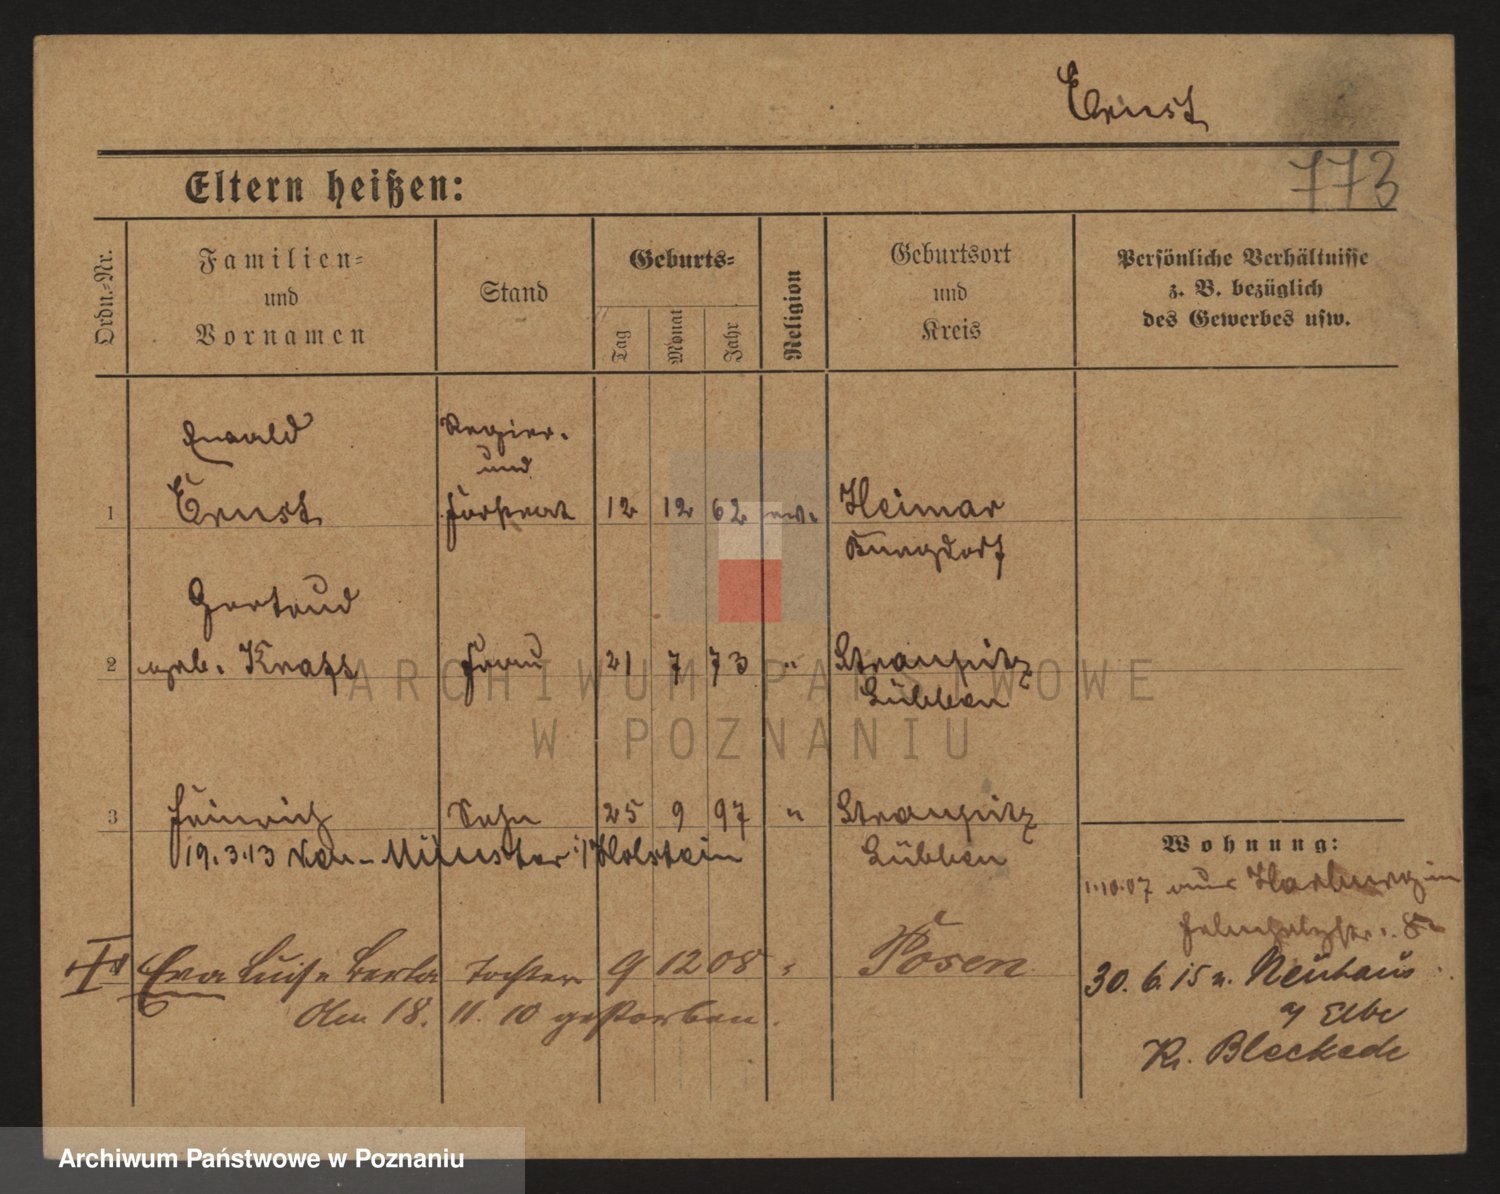 Ernst
773
Eltern heißen:
Ordn.-Nr.
Familien-
und
Vornamen
Stand
Geburts-
Tag
Monat
Jahr
Religion
Geburtsort
und
Kreis
Persönliche Verhältnisse
z. B. bezüglich
des Gewerbes usw.
Ewald
Regier.-
und
1 Ernst Forstrat 12 12 62 ev. Heimar
Burgdorf
Gertrud
2 geb. Frau 21 7 73 " Straupitz
Lübben
3 Heinrich Sohn 25 9 97 " Straupitz
19.3.13 Neu-Münster i/Holstein
Lübben
Wohnung:
1.10.07 aus Harburg in
Eva Luise Berta Tochter 9 12 08 " Posen
am 18. 11. 10 gestorben.
30.6.15 n. Neuhaus
a/Elbe
Kr. Bleckede
ARCHIWUM PAŃSTWOWE
W POZNANIU
Archiwum Państwowe w Poznaniu